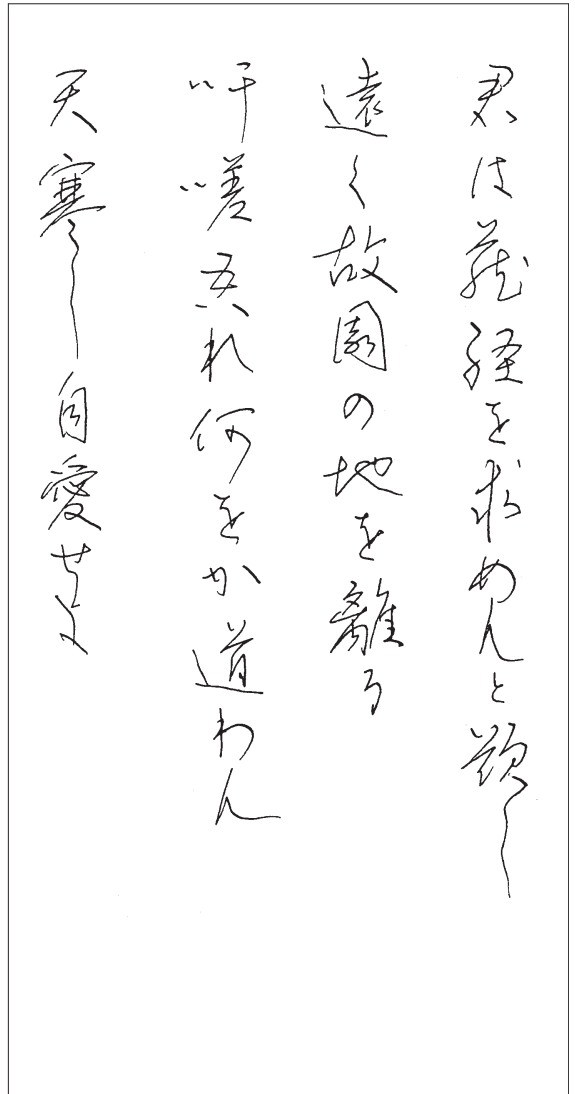 君は蔵経を求めんと欲し
遠く故園の地を離る
吁嗟吾れ何をか道わん
天寒し自愛せよ